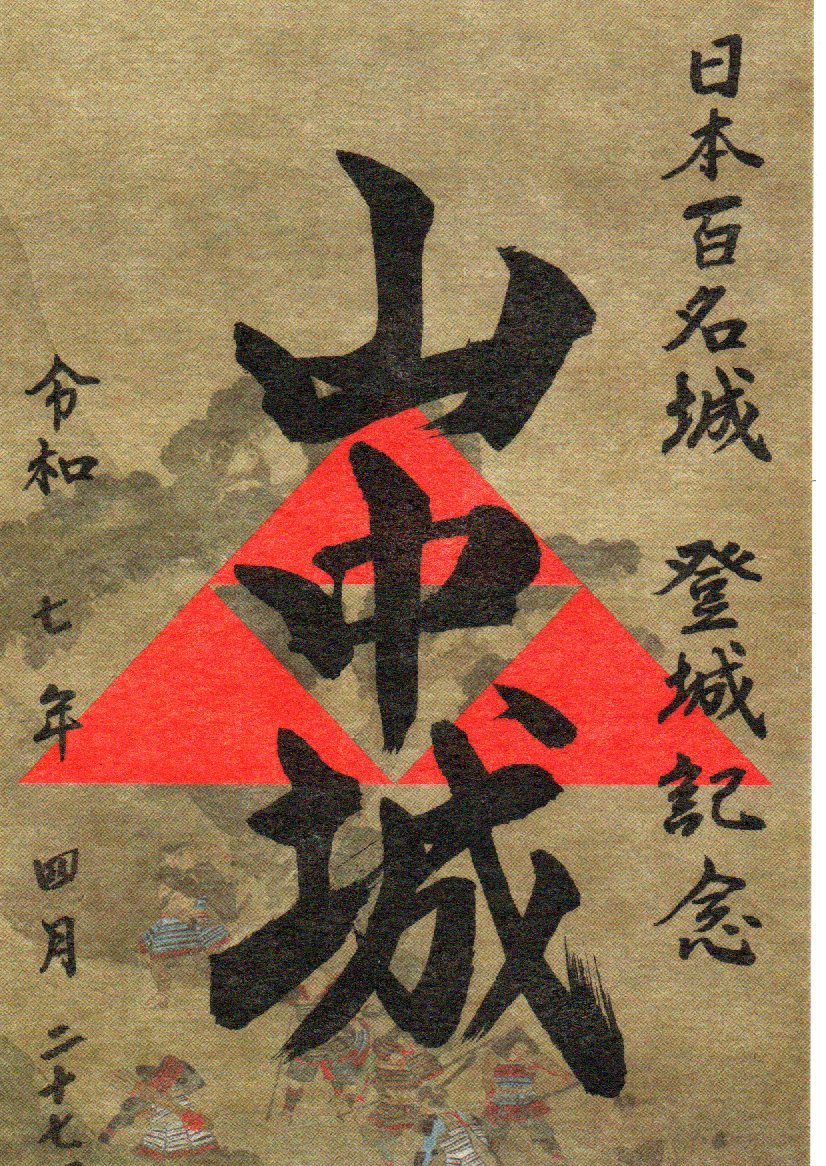 日本百名城 登城記念
山中城
令和 七年 四月 二十七